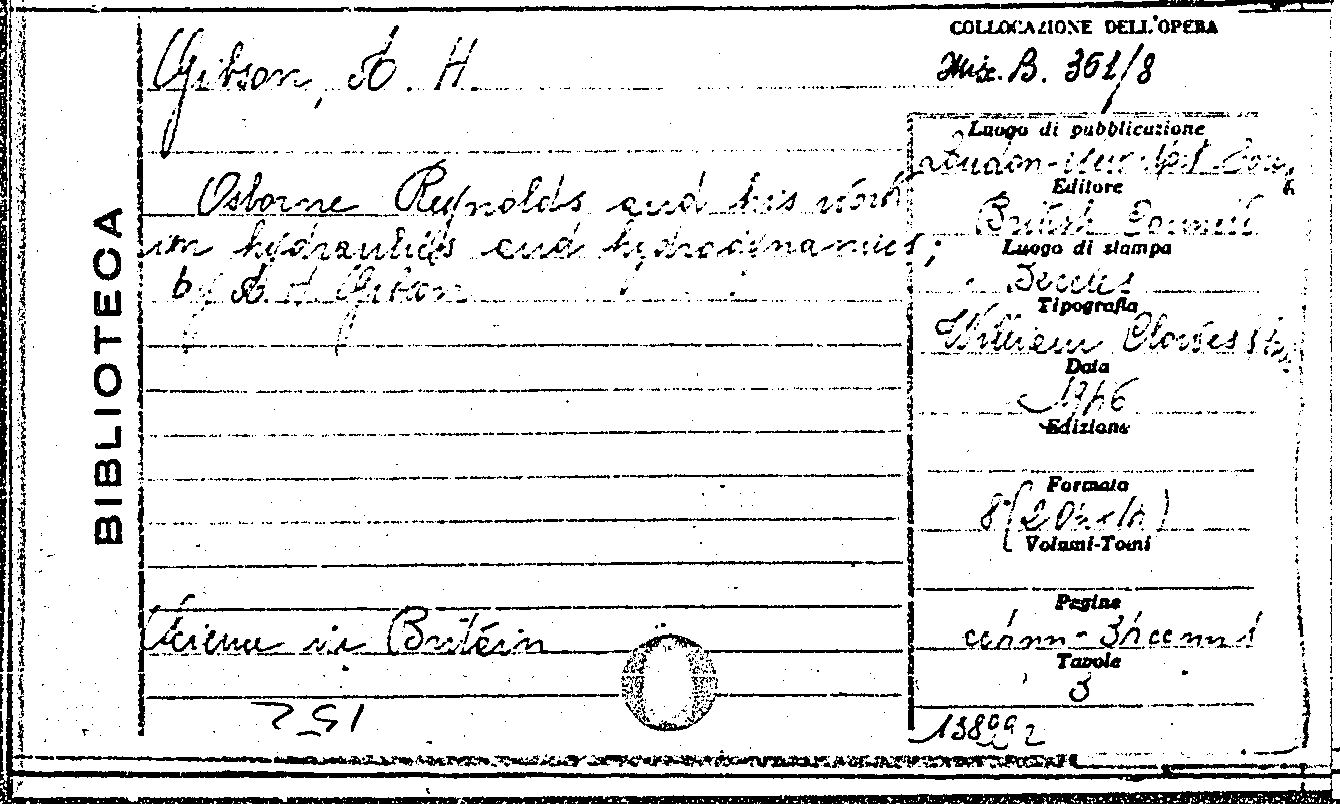 COLLOCAZIONE DELL'OPERA
Misc. B. 361/8
Gibson, A. H.
Osborne Reynolds and his work
in hydraulics and hydrodynamics;
by A. H. Gibson
Science in Britain
BIBLIOTECA
Luogo di pubblicazione
London-New York
Editore
British Council
Luogo di stampa
Beccles
Tipografia
William Clowes
Data
1946
Edizione
Formato
8°
Volumi-Tomi
Pagine
Tavole
3